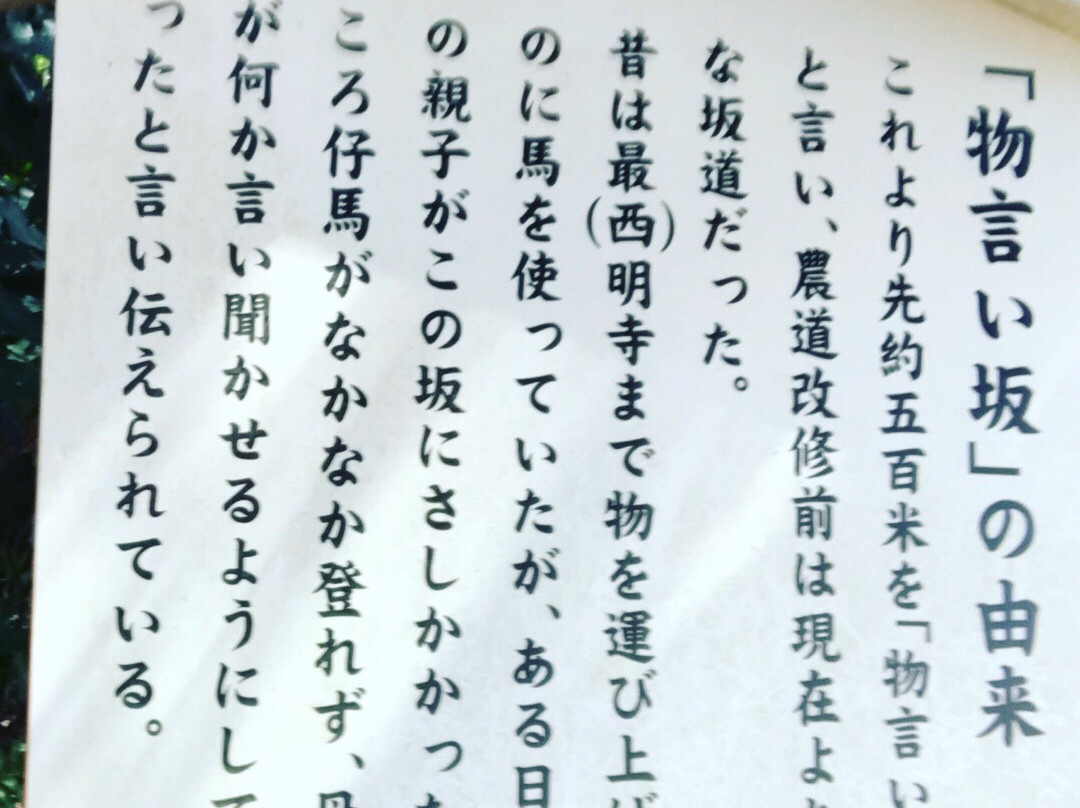 「物言い坂」の由来
これより先約五百米を「物言い
と言い、農道改修前は現在よ
な坂道だった。
昔は最(西)明寺まで物を運び上げ
のに馬を使っていたが、ある日
の親子がこの坂にさしかかっ
ころ仔馬がなかなか登れず、
が何か言い聞かせるようにして
ったと言い伝えられている。